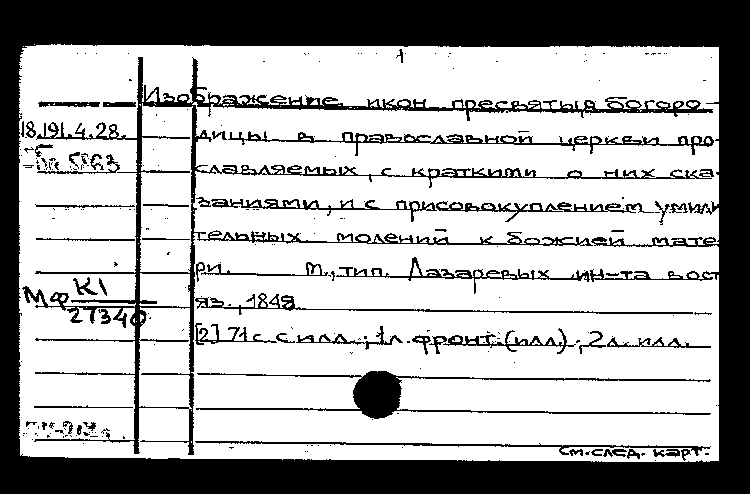 Изображение икон пресвятыя богоро-
18.191.4.28.
дицы в православной церкви про-
славляемых, с краткими о них ска-
заниями, и с присовокуплением умили
тельных молений к божией мате-
ри. М., тип. Лазаревых ин-та вост
Мф К1
27340
яз., 1848
[2] 71 с. с илл.; 1 л. фронт. (илл.); 2 л. илл.
См. след. карт.